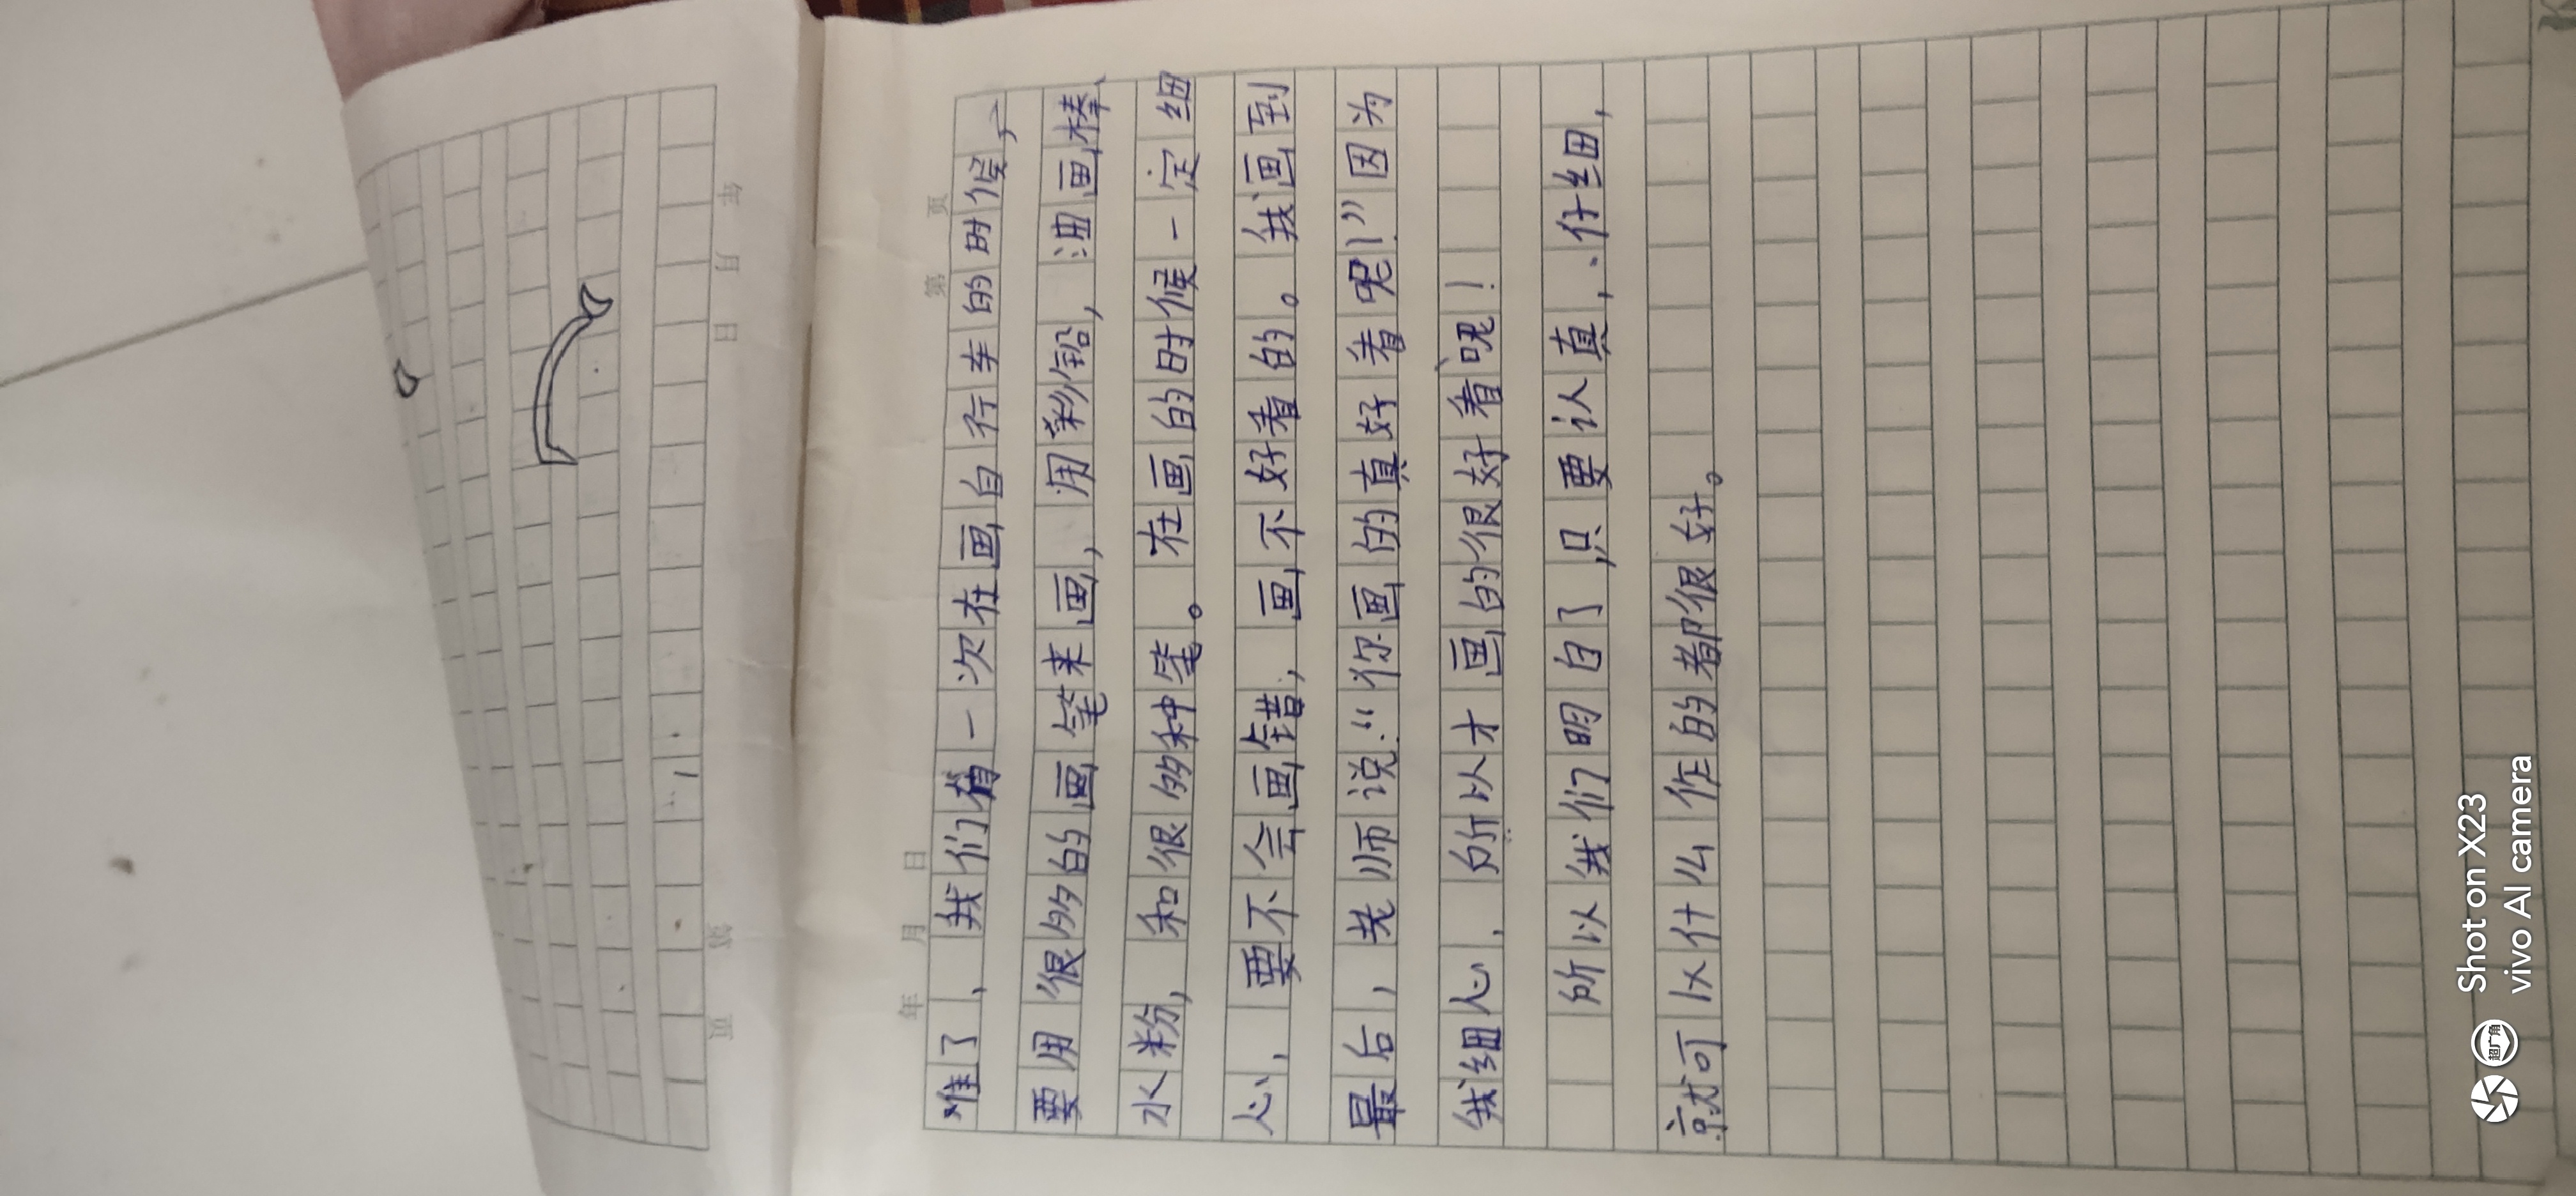 年 月 日 第 页
年 月 日 第 页
难了，我们有一次在画自行车的时候，
要用很多的画笔来画，用彩铅，油画棒、
水粉，和很多种笔。在画的时候一定细
心，要不会画错，画不好看的。我画到
最后，老师说：“你画的真好看呢！”因为
我细心，所以才画的很好看呢！
所以我们明白了，只要认真，仔细，
就可以什么作的都很好。
Shot on X23
vivo AI camera
超广角